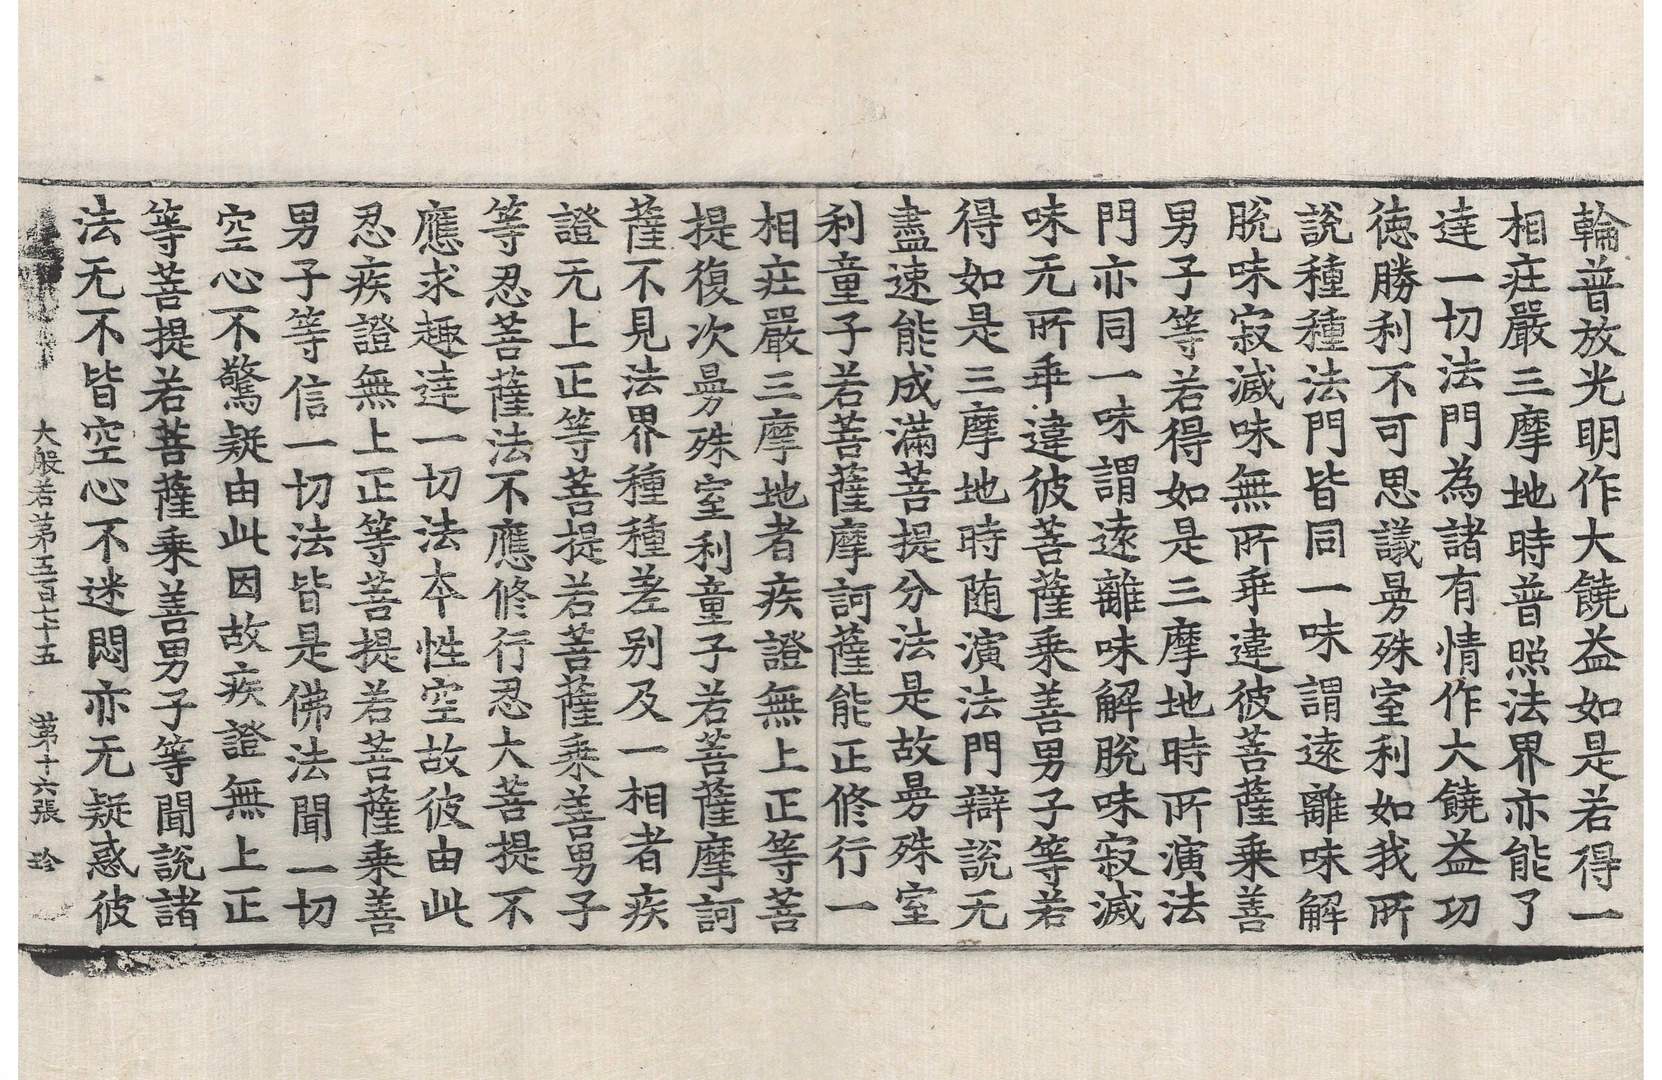 輪普放光明作大饒益如是若得一
相莊嚴三摩地時普照法界亦能了
達一切法門為諸有情作大饒益功
徳勝利不可思議曼殊室利如我所
說種種法門皆同一味謂遠離味解
脫味寂滅味無所乖違彼菩薩乘善
男子等若得如是三摩地時所演法
門亦同一味謂遠離味解脫味寂滅
味无所乖違彼菩薩乘善男子等若
得如是三摩地時随演法門辯說无
盡速能成滿菩提分法是故曼殊室
利童子若菩薩摩訶薩能正修行一
相莊嚴三摩地者疾證無上正等菩
提復次曼殊室利童子若菩薩摩訶
薩不見法界種種差別及一相者疾
證无上正等菩提若菩薩乘善男子
等忍菩薩法不應修行忍大菩提不
應求趣達一切法本性空故彼由此
忍疾證無上正等菩提若菩薩乘善
男子等信一切法皆是佛法聞一切
空心不驚疑由此因故疾證無上正
等菩提若菩薩乘善男子等聞說諸
法无不皆空心不迷悶亦无疑惑彼
大般若第五百七十五 第十六張 珍